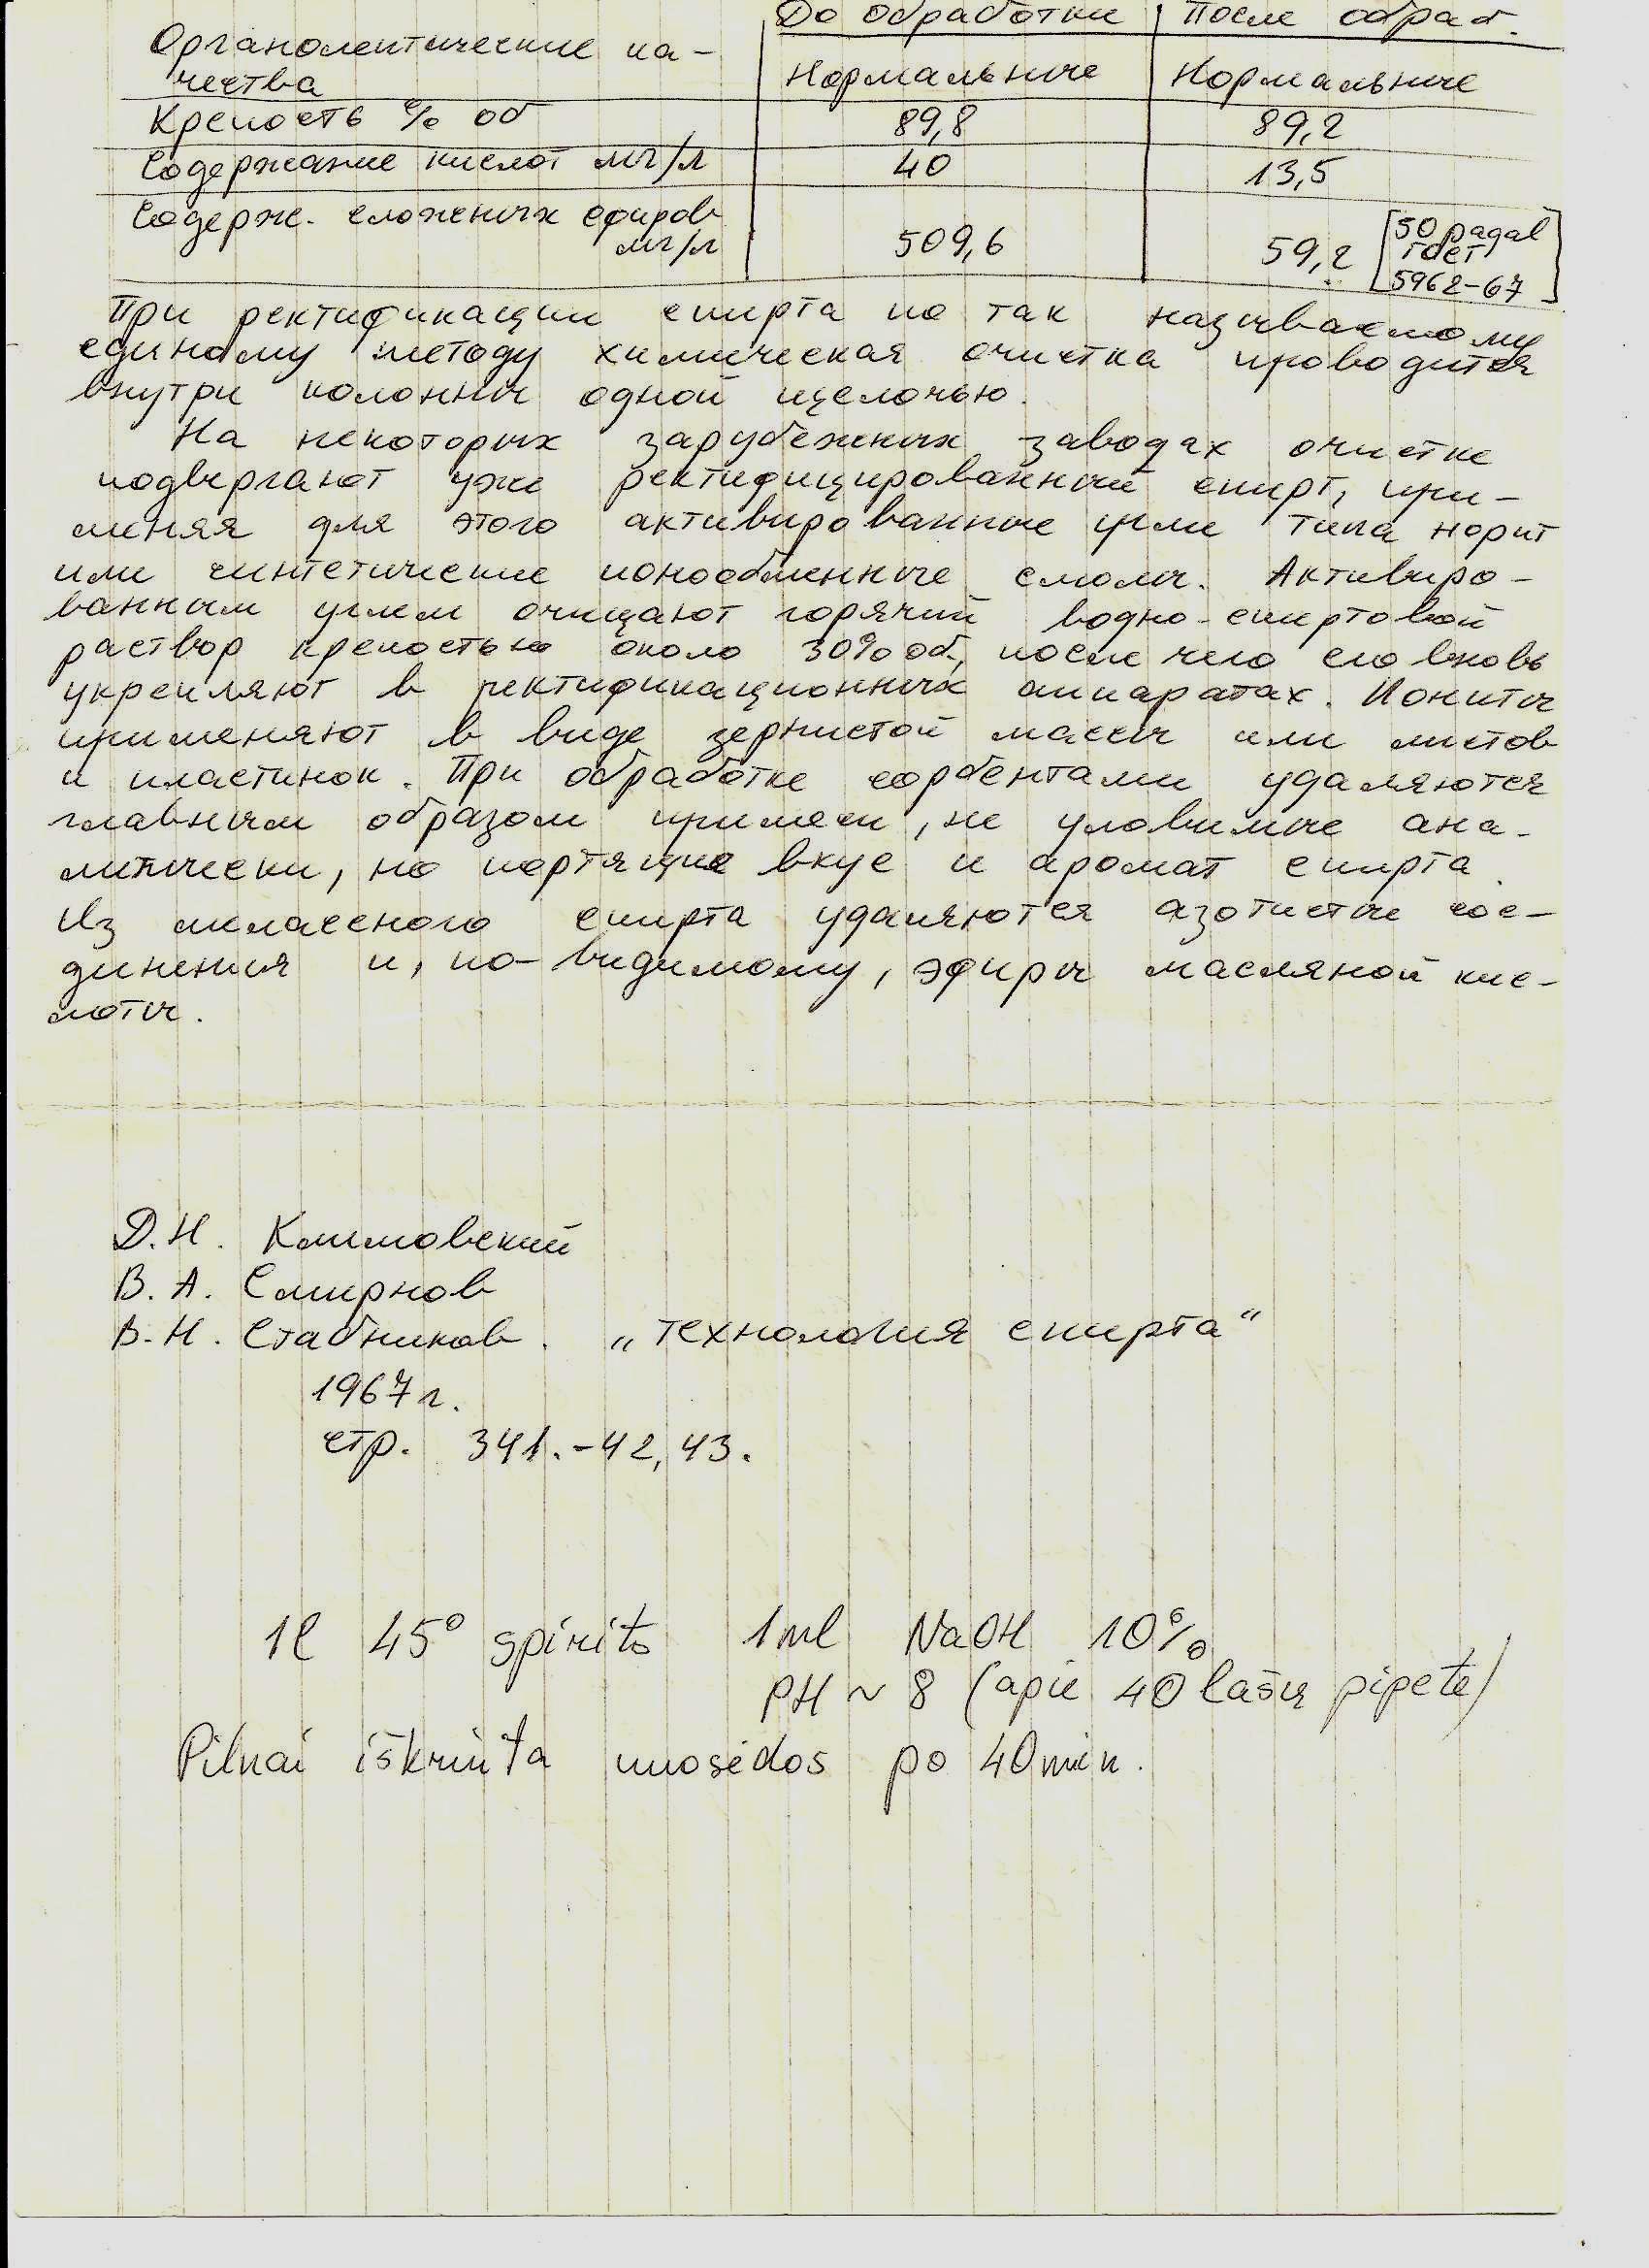 До обработки | После обраб.
Органолептические ка-
чества | Нормальные | Нормальные
Крепость % об | 89,8 | 89,2
Содержание кислот мг/л | 40 | 13,5
Содерж. сложных ефиров
мг/л | 509,6 | 59,2 [50 pagal
гост
5962-67]
При ректификации спирта по так называемому
единому методу химическая очистка проводится
внутри колонны одной щелочью.
На некоторых зарубежных заводах очистке
подвергают уже ректифицированный спирт, при-
меняя для этого активированные угли типа норит
или синтетические ионообменные смолы. Активиро-
ванным углем очищают горячий водно-спиртовой
раствор крепостью около 30% об, после чего его вновь
укрепляют в ректификационных аппаратах. Иониты
применяют в виде зернистой массы или листов
и пластинок. При обработке сорбентами удаляются
главным образом примеси, не уловимые ана-
литически, но портящие вкус и аромат спирта.
Из мелассного спирта удаляются азотистые сое-
динения и, по-видимому, эфиры масляной кис-
лоты.
Д.Н. Климовский
В.А. Смирнов
В.Н. Стабников. „Технология спирта“
1967 г.
стр. 341.-42, 43.
1l 45° spirito 1ml NaOH 10%
PH ~ 8 (apie 40 lašų pipete)
Pilnai iškrinta nuosėdos po 40 min.